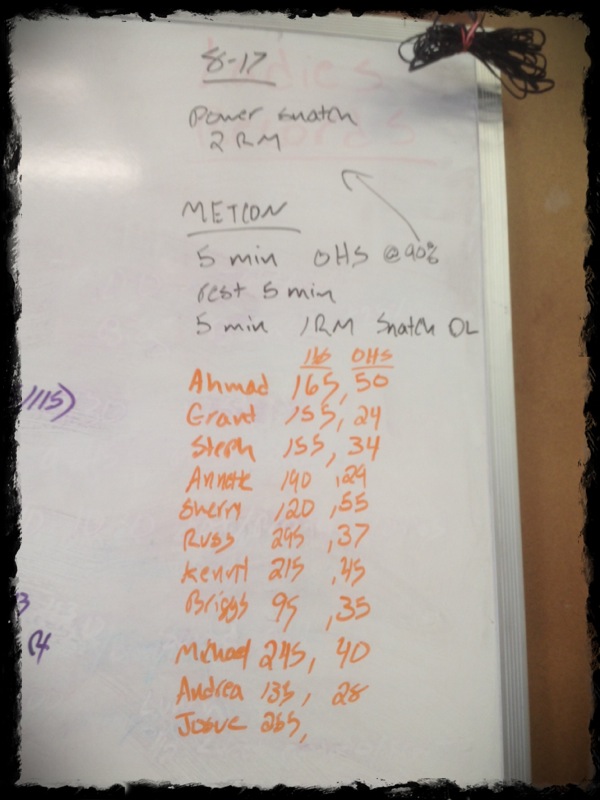 8-17
Power snatch
2 RM
METCON
5 min OHS @90%
rest 5 min
5 min 1RM Snatch DL
lbs OHS
Ahmad 165, 50
Grant 155, 24
Steph 155, 34
Annette 140, 29
Sherry 120, 55
Russ 295, 37
215, 45
Briggs 95, 35
Michael 245, 40
Andrea 135, 28
Josue 255,
/115)